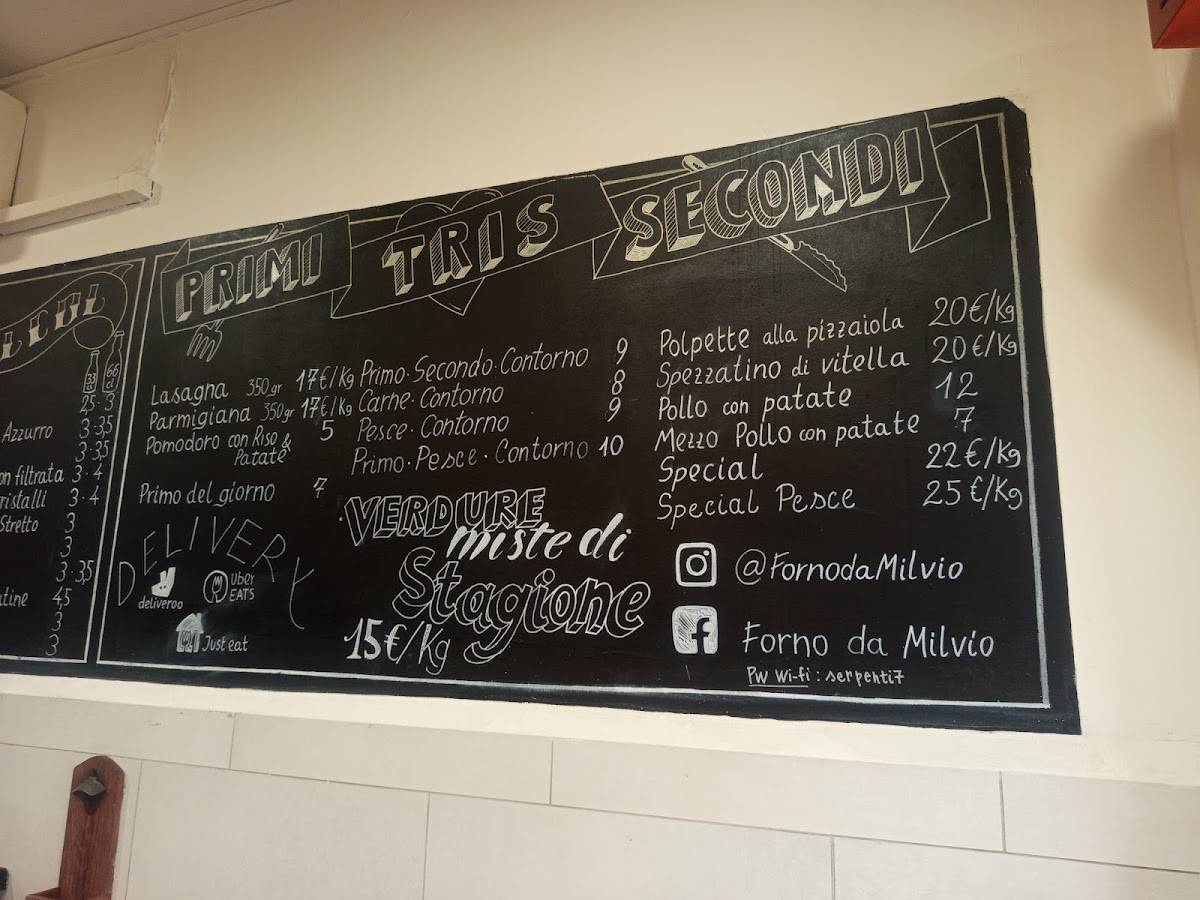 33 cl
66 cl
25 · 3
Azzurro 3 · 3,5
3 · 3,5
filtrata 3 · 4
3 · 4
Stretto 3
3
3 · 3,5
4,5
3
3
PRIMI
Lasagna 350gr 17€/Kg
Parmigiana 350gr 17€/Kg
Pomodoro con Riso & 5
Patate
Primo del giorno 7
DELIVERY
deliveroo
UBER
EATS
Just eat
TRIS
Primo · Secondo · Contorno 9
Carne · Contorno 8
Pesce · Contorno 9
Primo · Pesce · Contorno 10
· VERDURE
miste di
Stagione
15€/Kg
SECONDI
Polpette alla pizzaiola 20€/Kg
Spezzatino di vitella 20€/Kg
Pollo con patate 12
Mezzo Pollo con patate 7
Special 22€/Kg
Special Pesce 25€/Kg
@FornodaMilvio
f Forno da Milvio
Pw Wi-fi : serpenti7